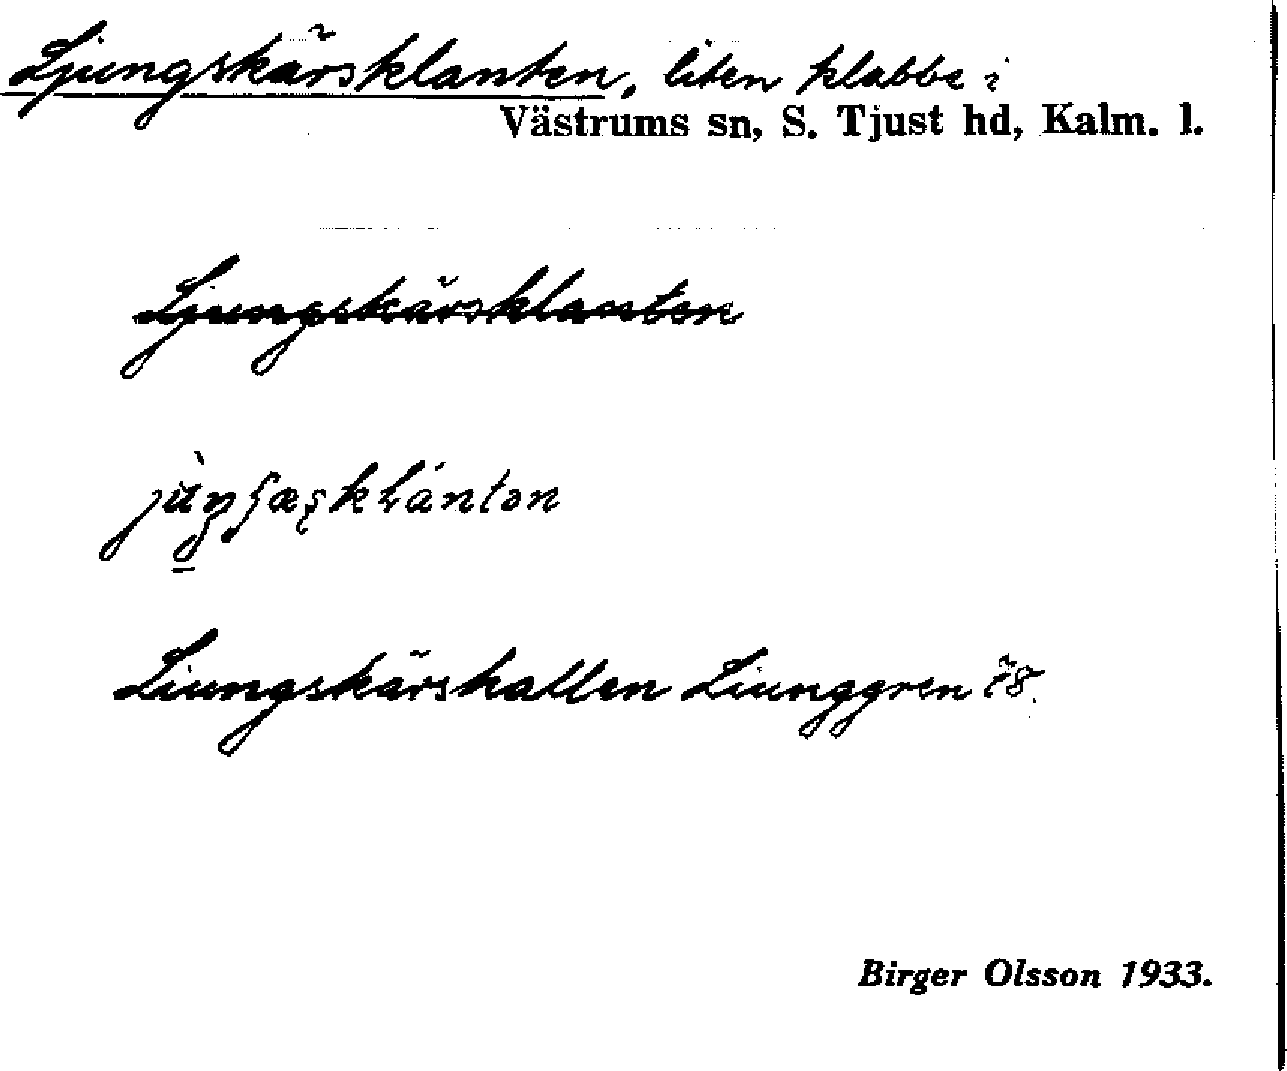 Ljungskärsklanten, liten klabbe i
Västrums sn, S. Tjust hd, Kalm. l.
Ljungskärsklanten
Liungskärshallen Liunggren 78.
Birger Olsson 1933.